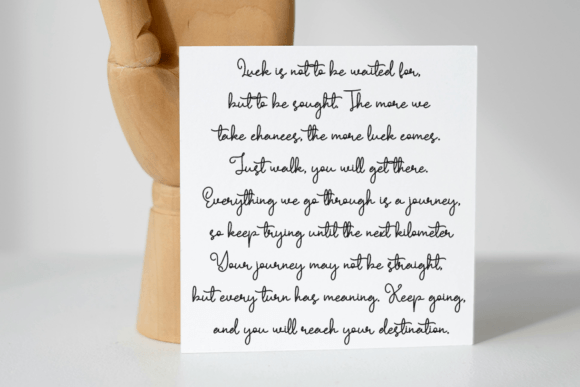 Luck is not to be waited for,
but to be sought. The more we
take chances, the more luck comes.
Just walk, you will get there.
Everything we go through is a journey,
so keep trying until the next kilometer
Your journey may not be straight,
but every turn has meaning. Keep going,
and you will reach your destination.